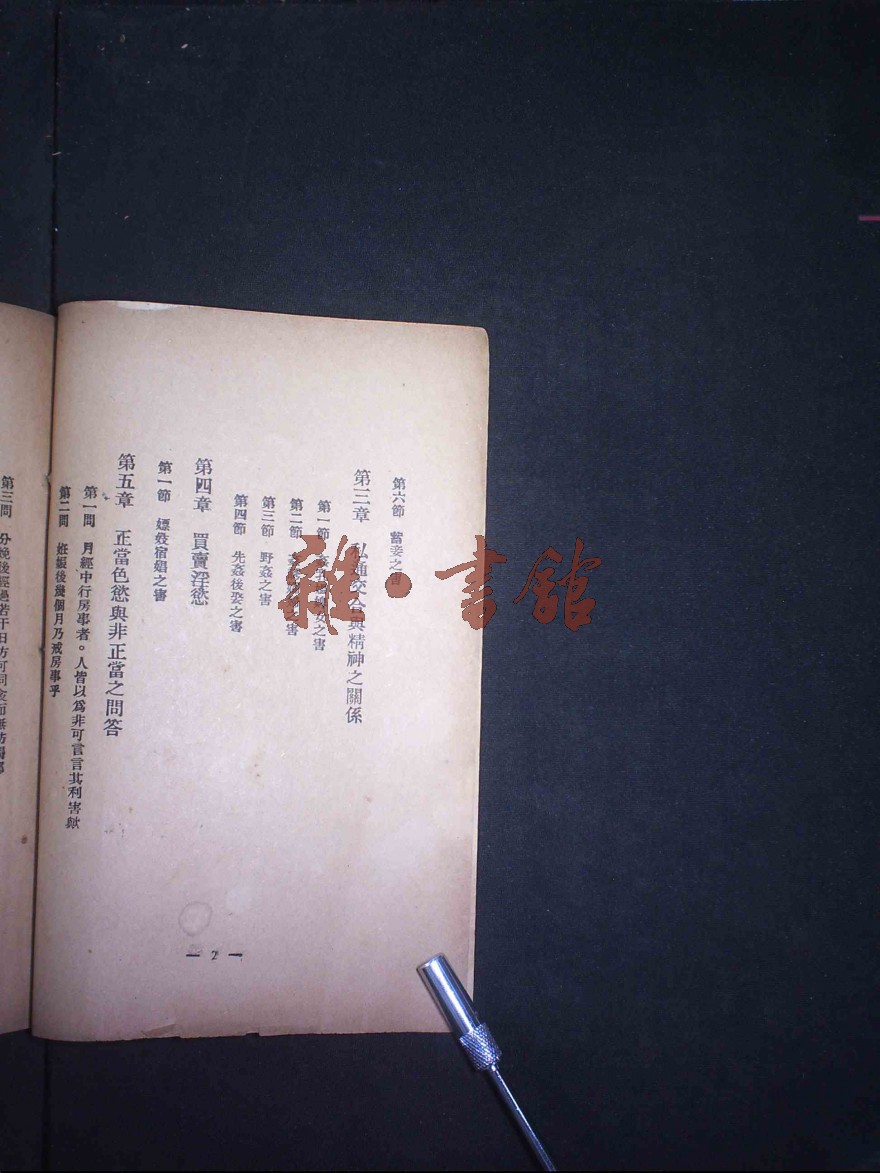 第六節 蓄妾之害
第三章 私通交合與精神之關係
第一節 婦女之害
第二節 之害
第三節 野姦之害
第四節 先姦後娶之害
第四章 買賣淫慾
第一節 嫖妓宿娼之害
第五章 正當色慾與非正當之問答
第一問 月經中行房事者。人皆以爲非可言言其利害歟
第二問 妊娠後幾個月乃戒房事乎
第三問 分娩後經過若干日方可同衾而無妨
— 2 —
雜·書館